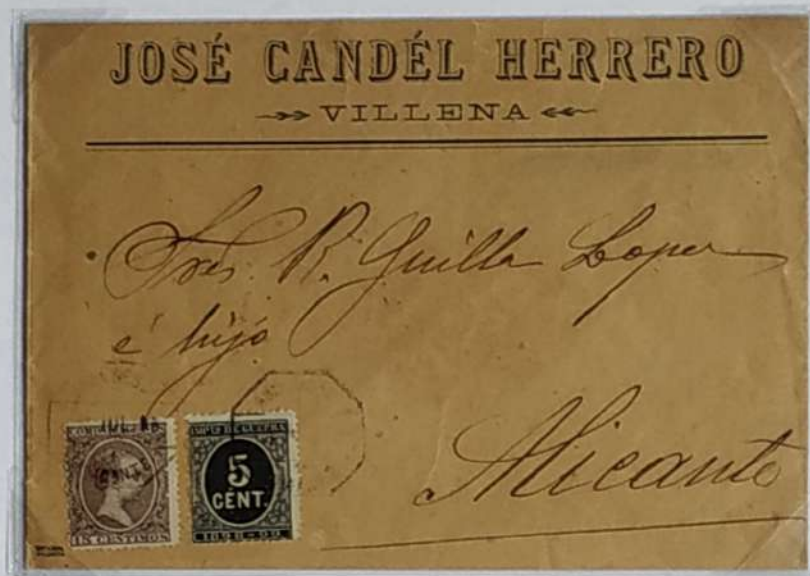 JOSÉ CANDÉL HERRERO
VILLENA
Sres. R. Guillen Lopez
é hijo
Alicante
COMUNICACIONES
15 CENTIMOS
IMPTO DE GUERRA
5
CENT.
1898-99